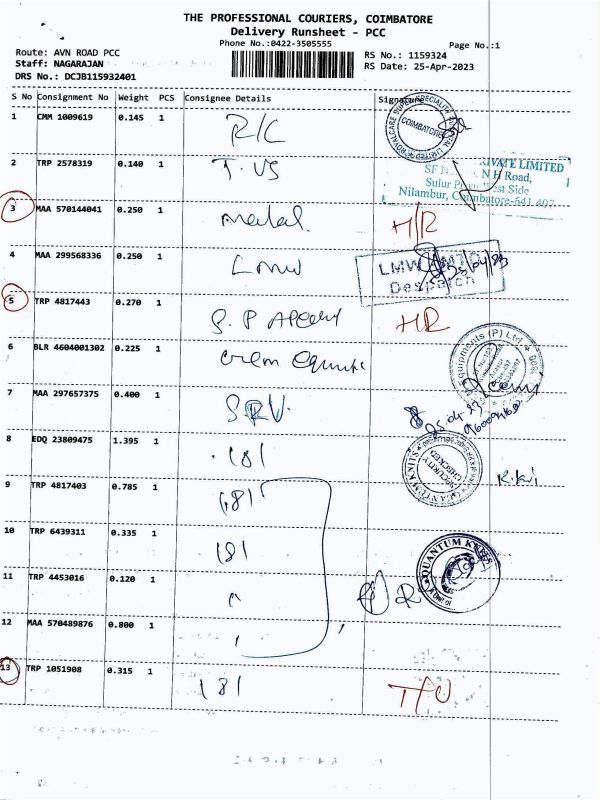 THE PROFESSIONAL COURIERS, COIMBATORE
Delivery Runsheet - PCC
Phone No.:0422-3505555
Page No.:1
Route: AVN ROAD PCC
RS No.: 1159324
Staff: NAGARAJAN
RS Date: 25-Apr-2023
DRS No.: DCJB115932401
S No Consignment No Weight PCS Consignee Details Signature
1 CMM 1009619 0.145 1 R/C
COIMBATORE
2 TRP 2578319 0.140 1 T.VS
PRIVATE LIMITED
N H Road,
Sulur West Side
Nilambur, Coimbatore-641 407
3 MAA 570144041 0.250 1 H/R
4 MAA 299568336 0.250 1 LMW
LMW
Despatch
5 TRP 4817443 0.270 1 HR
6 BLR 4604001302 0.225 1
Equipments (P) Ltd
7 MAA 297657375 0.400 1 SRV.
25.04.23
8 EDQ 23809475 1.395 1 181
QUANTUM KNITS
SECURITY
CHECKED
9 TRP 4817403 0.785 1 181
10 TRP 6439311 0.335 1 181
QUANTUM KNITS
11 TRP 4453016 0.120 1 "
12 MAA 570489876 0.800 1 '
13 TRP 1051908 0.315 1 181